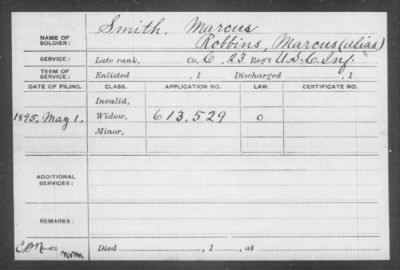 NAME OF SOLDIER: Smith, Marcus
Robbins, Marcus (alias)
SERVICE: Late rank, Co. C, 23 Reg't U.S.C. Inf.
TERM OF SERVICE: Enlisted , 1 Discharged , 1
DATE OF FILING. CLASS. APPLICATION NO. LAW. CERTIFICATE NO.
Invalid,
1895, May 1. Widow, 613,529 0
Minor,
ADDITIONAL SERVICES:
REMARKS:
Died , 1 , at